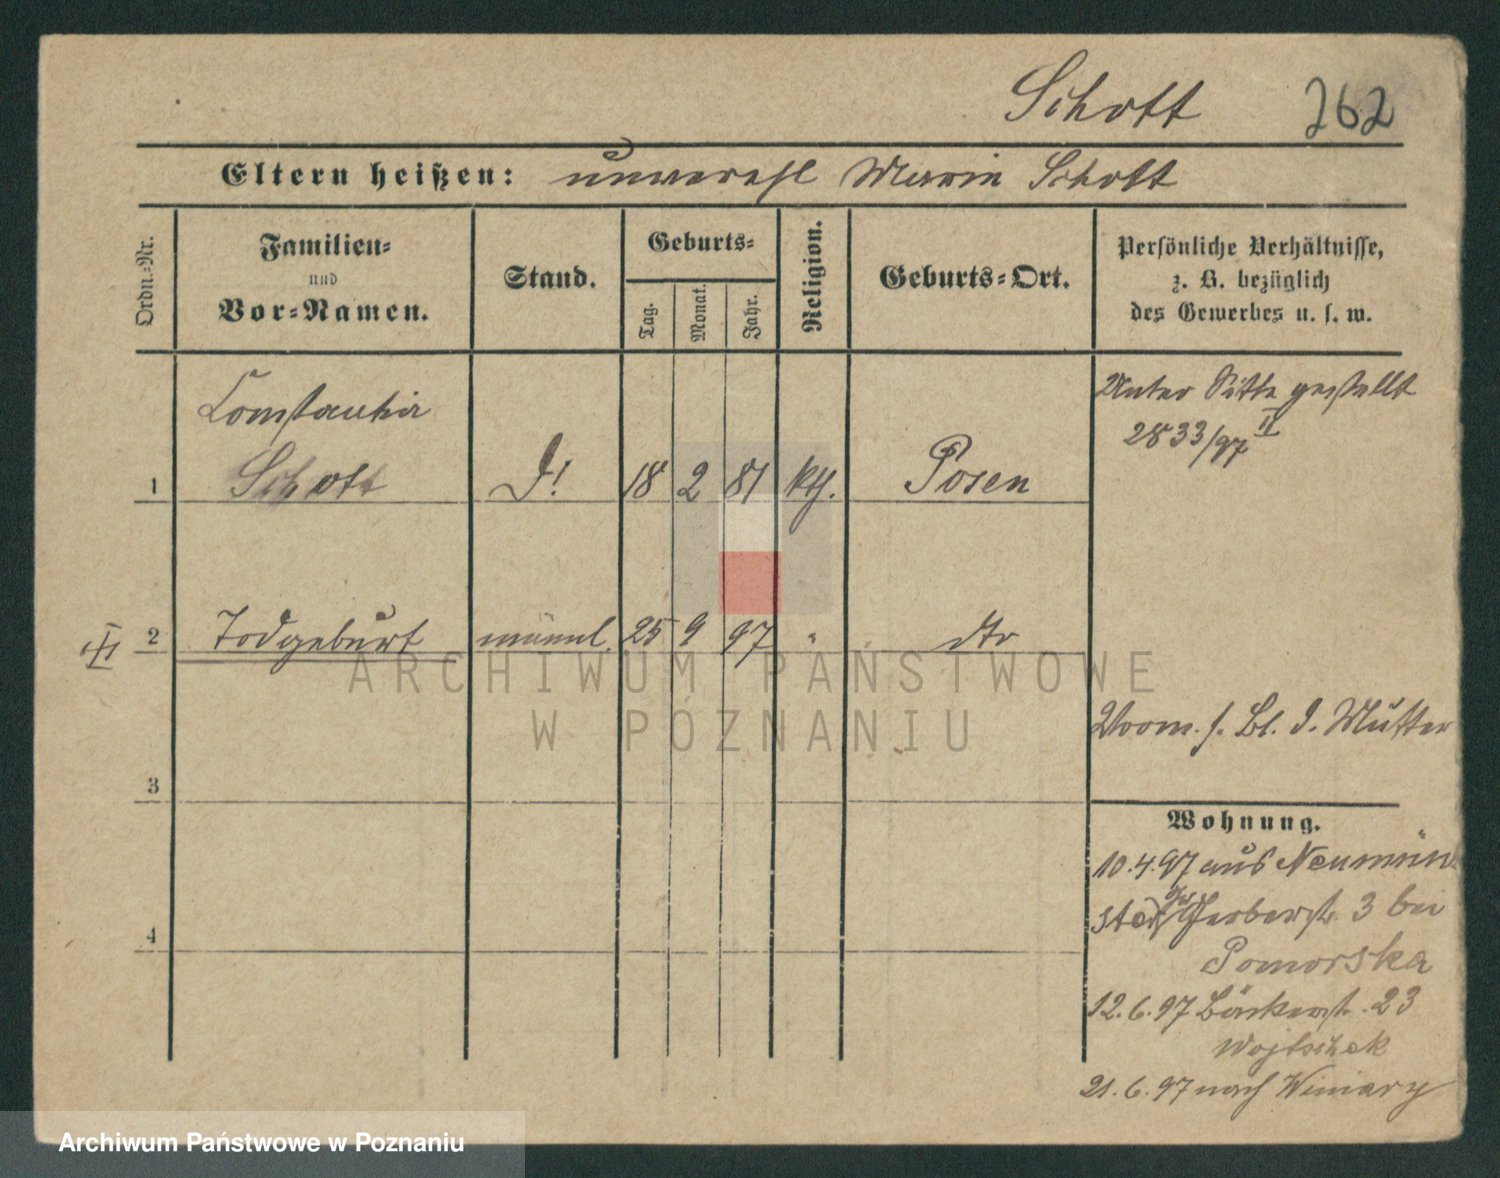 Schott 262
Eltern heißen: unverehl Marie Schott
Ordn.=Nr.
Familien=
und
Vor=Namen.
Stand.
Geburts=
Tag.
Monat.
Jahr.
Religion.
Geburts=Ort.
Persönliche Verhältnisse,
z. B. bezüglich
des Gewerbes u. s. w.
Constantia
1 Schott D! 18 2 81 kth. Posen
Unter Sitte gestellt
2833/97 II
2 Todgeburt männl. 25 9 97 " dto
3
Vorm. s. Bl. d. Mutter
4
Wohnung.
10.4.97 aus Neumün
ster Gerberstr. 3 bei
Pomorska
12.6.97 Bäckerstr. 23
Wojtschak
21.6.97 nach Winiary
ARCHIWUM PAŃSTWOWE
W POZNANIU
Archiwum Państwowe w Poznaniu